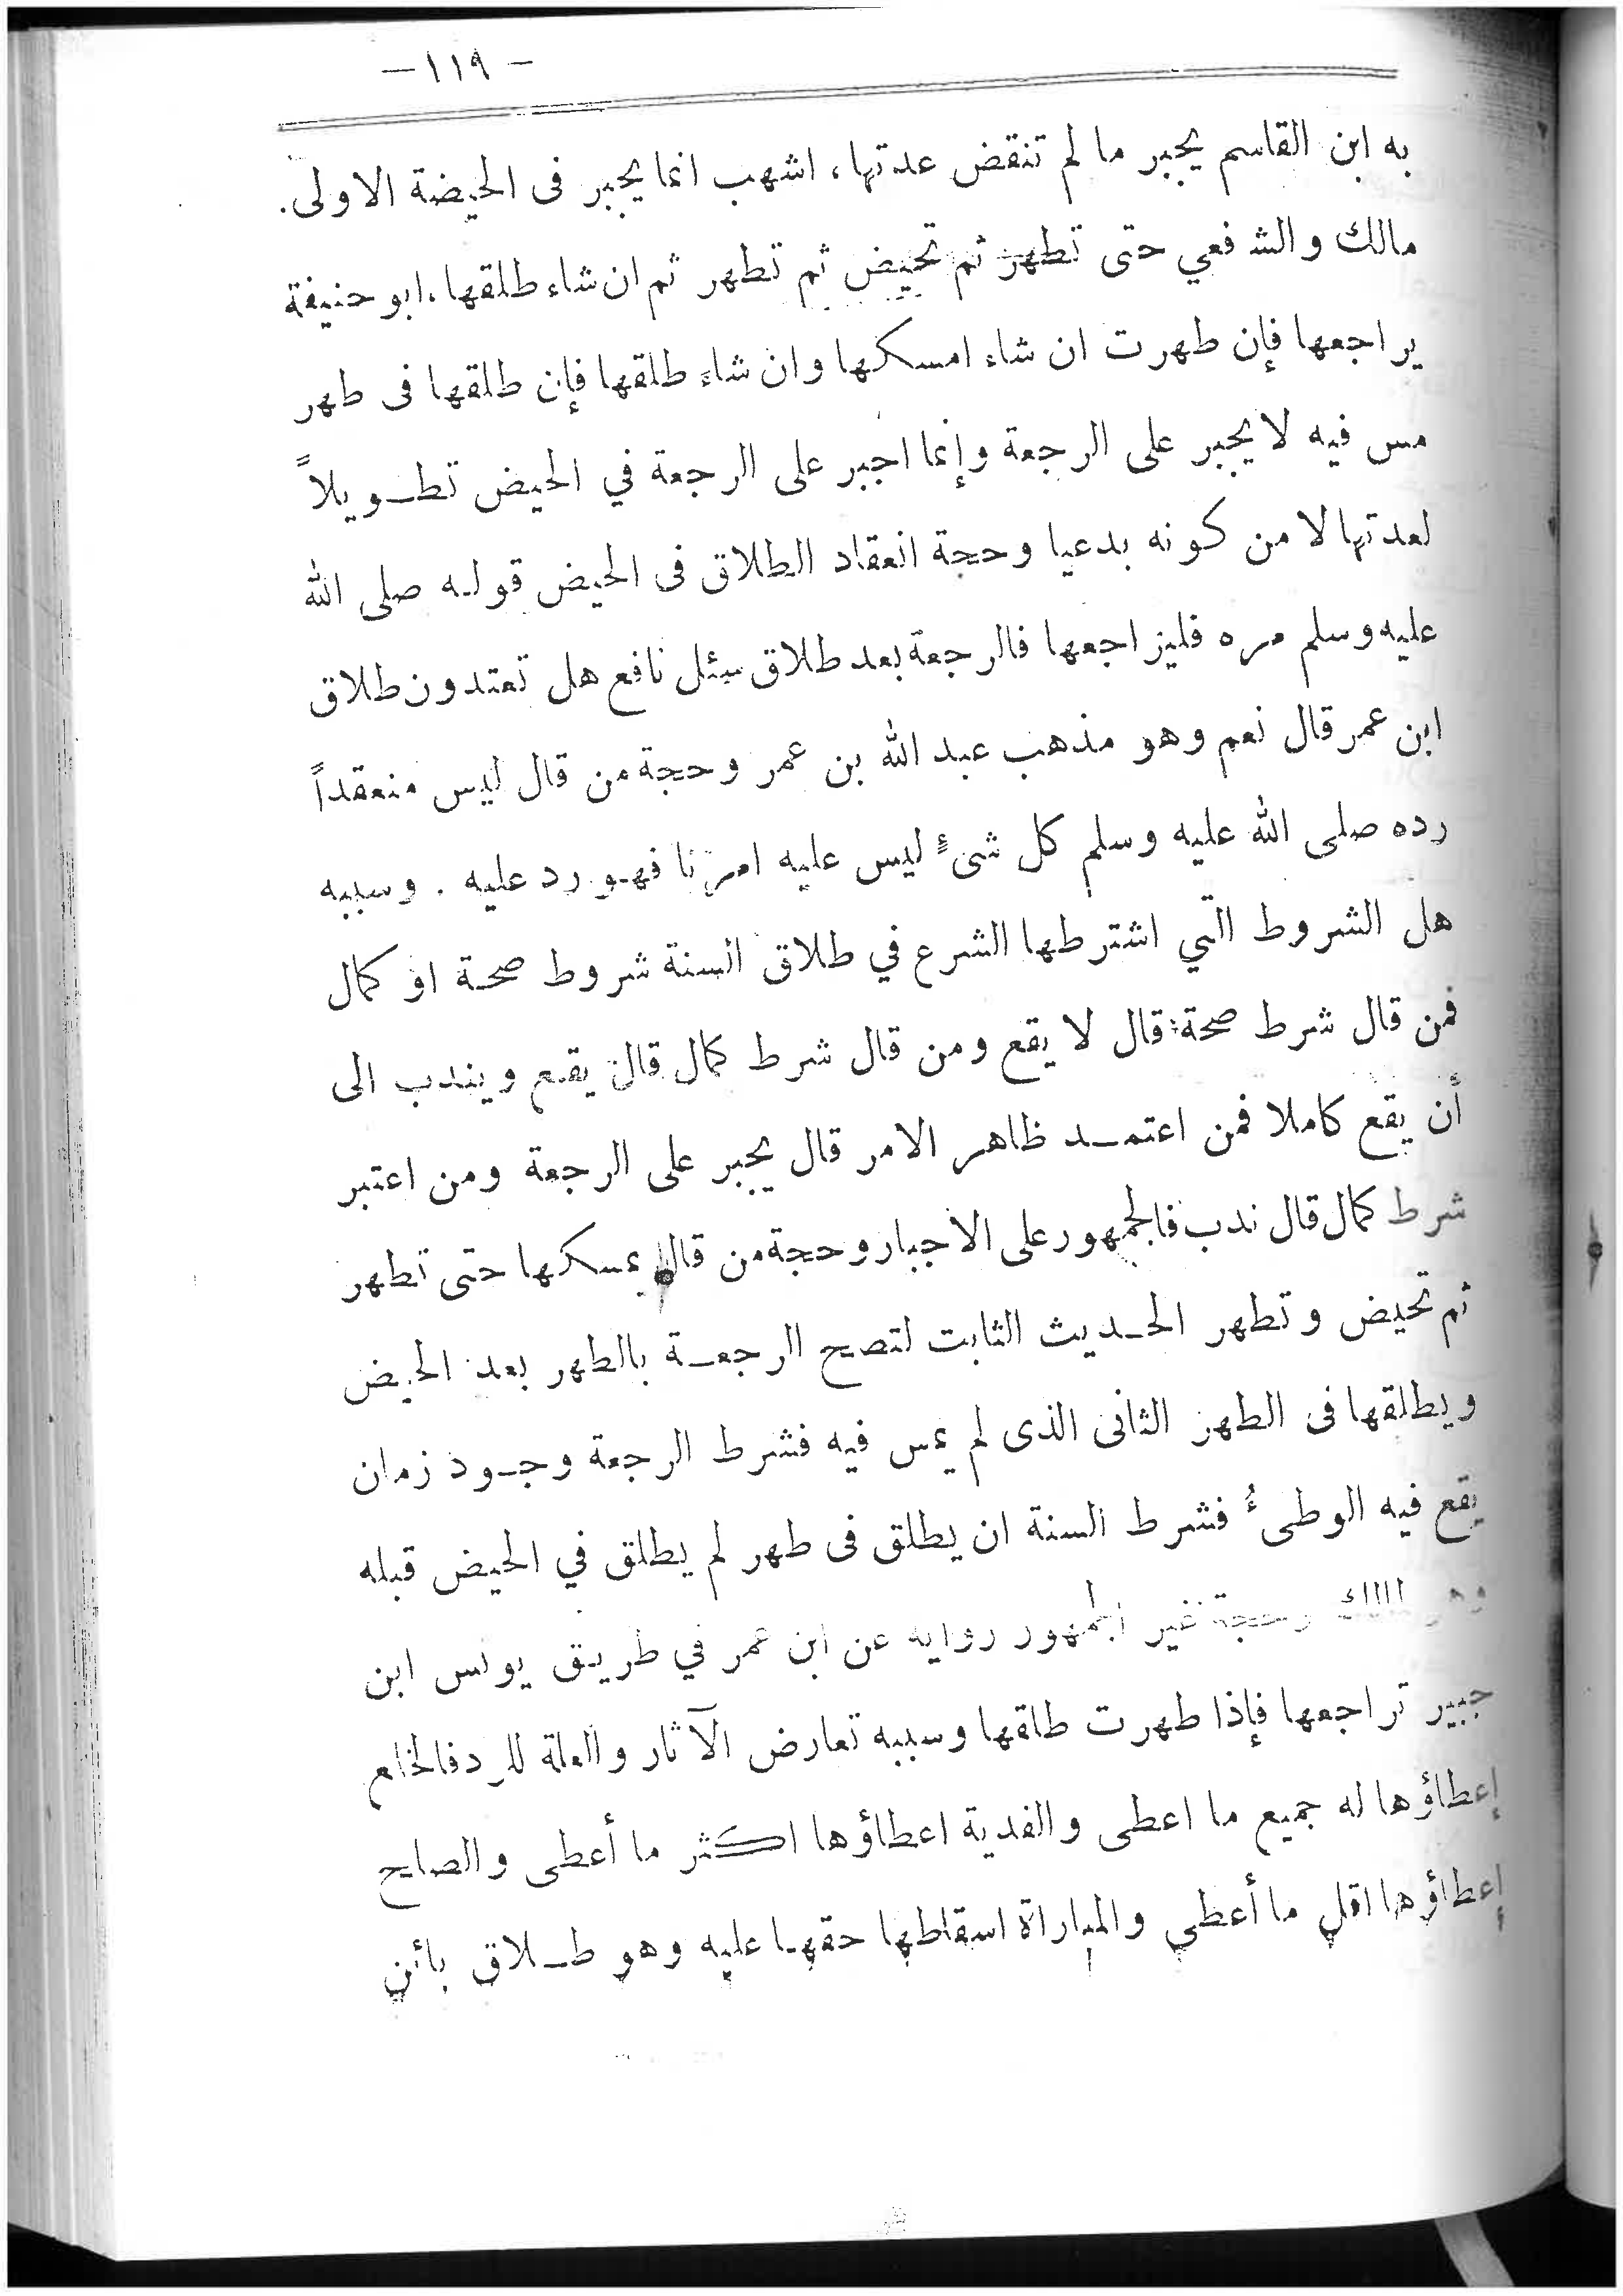 - ١١٩ -
به ابن القاسم يجبر ما لم تنقض عدتها، اشهب انما يجبر فى الحيضة الاولى.
مالك والشفعي حتى تطهر ثم تحيض ثم تطهر ثم ان شاء طلقها، ابو حنيفة
يراجعها فإن طهرت ان شاء امسكها وان شاء طلقها فإن طلقها فى طهر
مس فيه لا يجبر على الرجعة وإنما اجبر على الرجعة في الحيض تطويلاً
لعدتها لا من كونه بدعيا وحجة انعقاد الطلاق فى الحيض قوله صلى الله
عليه وسلم مره فليراجعها فالرجعة بعد طلاق سئل نافع هل تعتدون طلاق
ابن عمر قال نعم وهو مذهب عبد الله بن عمر وحجة من قال ليس منعقداً
رده صلى الله عليه وسلم كل شىء ليس عليه امرنا فهو رد عليه . وسببه
هل الشروط التي اشترطها الشرع في طلاق السنة شروط صحة او كمال
فمن قال شرط صحة قال لا يقع ومن قال شرط كمال قال يقع ويندب الى
أن يقع كاملا فمن اعتمد ظاهر الامر قال يجبر على الرجعة ومن اعتبر
شرط كمال قال ندب فالجمهور على الاجبار وحجة من قال يمسكها حتى تطهر
ثم تحيض وتطهر الحديث الثابت لتصح الرجعة بالطهر بعد الحيض
ويطلقها فى الطهر الثانى الذى لم يمس فيه فشرط الرجعة وجود زمان
يقع فيه الوطىءُ فشرط السنة ان يطلق فى طهر لم يطلق في الحيض قبله
وحجة غير الجمهور رواية عن ابن عمر في طريق يونس ابن
جبير تراجعها فإذا طهرت طلقها وسببه تعارض الآثار والعلة للرد فالخلع
إعطاؤها له جميع ما اعطى والفدية اعطاؤها اكثر ما أعطى والصلح
إعطاؤها اقل ما أعطى والمباراة اسقاطها حقها عليه وهو طلاق بائن